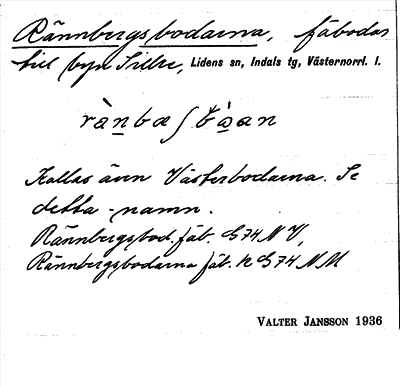 Rännbergsbodarna, fäbodar
till byn Sillre, Lidens sn, Indals tg, Västernorrl. l.
Kallas även Västerbodarna. Se
detta namn.
Rännbergsbod. fäb. G74 NV,
Rännbergsbodarna fäb. R G74 NM
VALTER JANSSON 1936